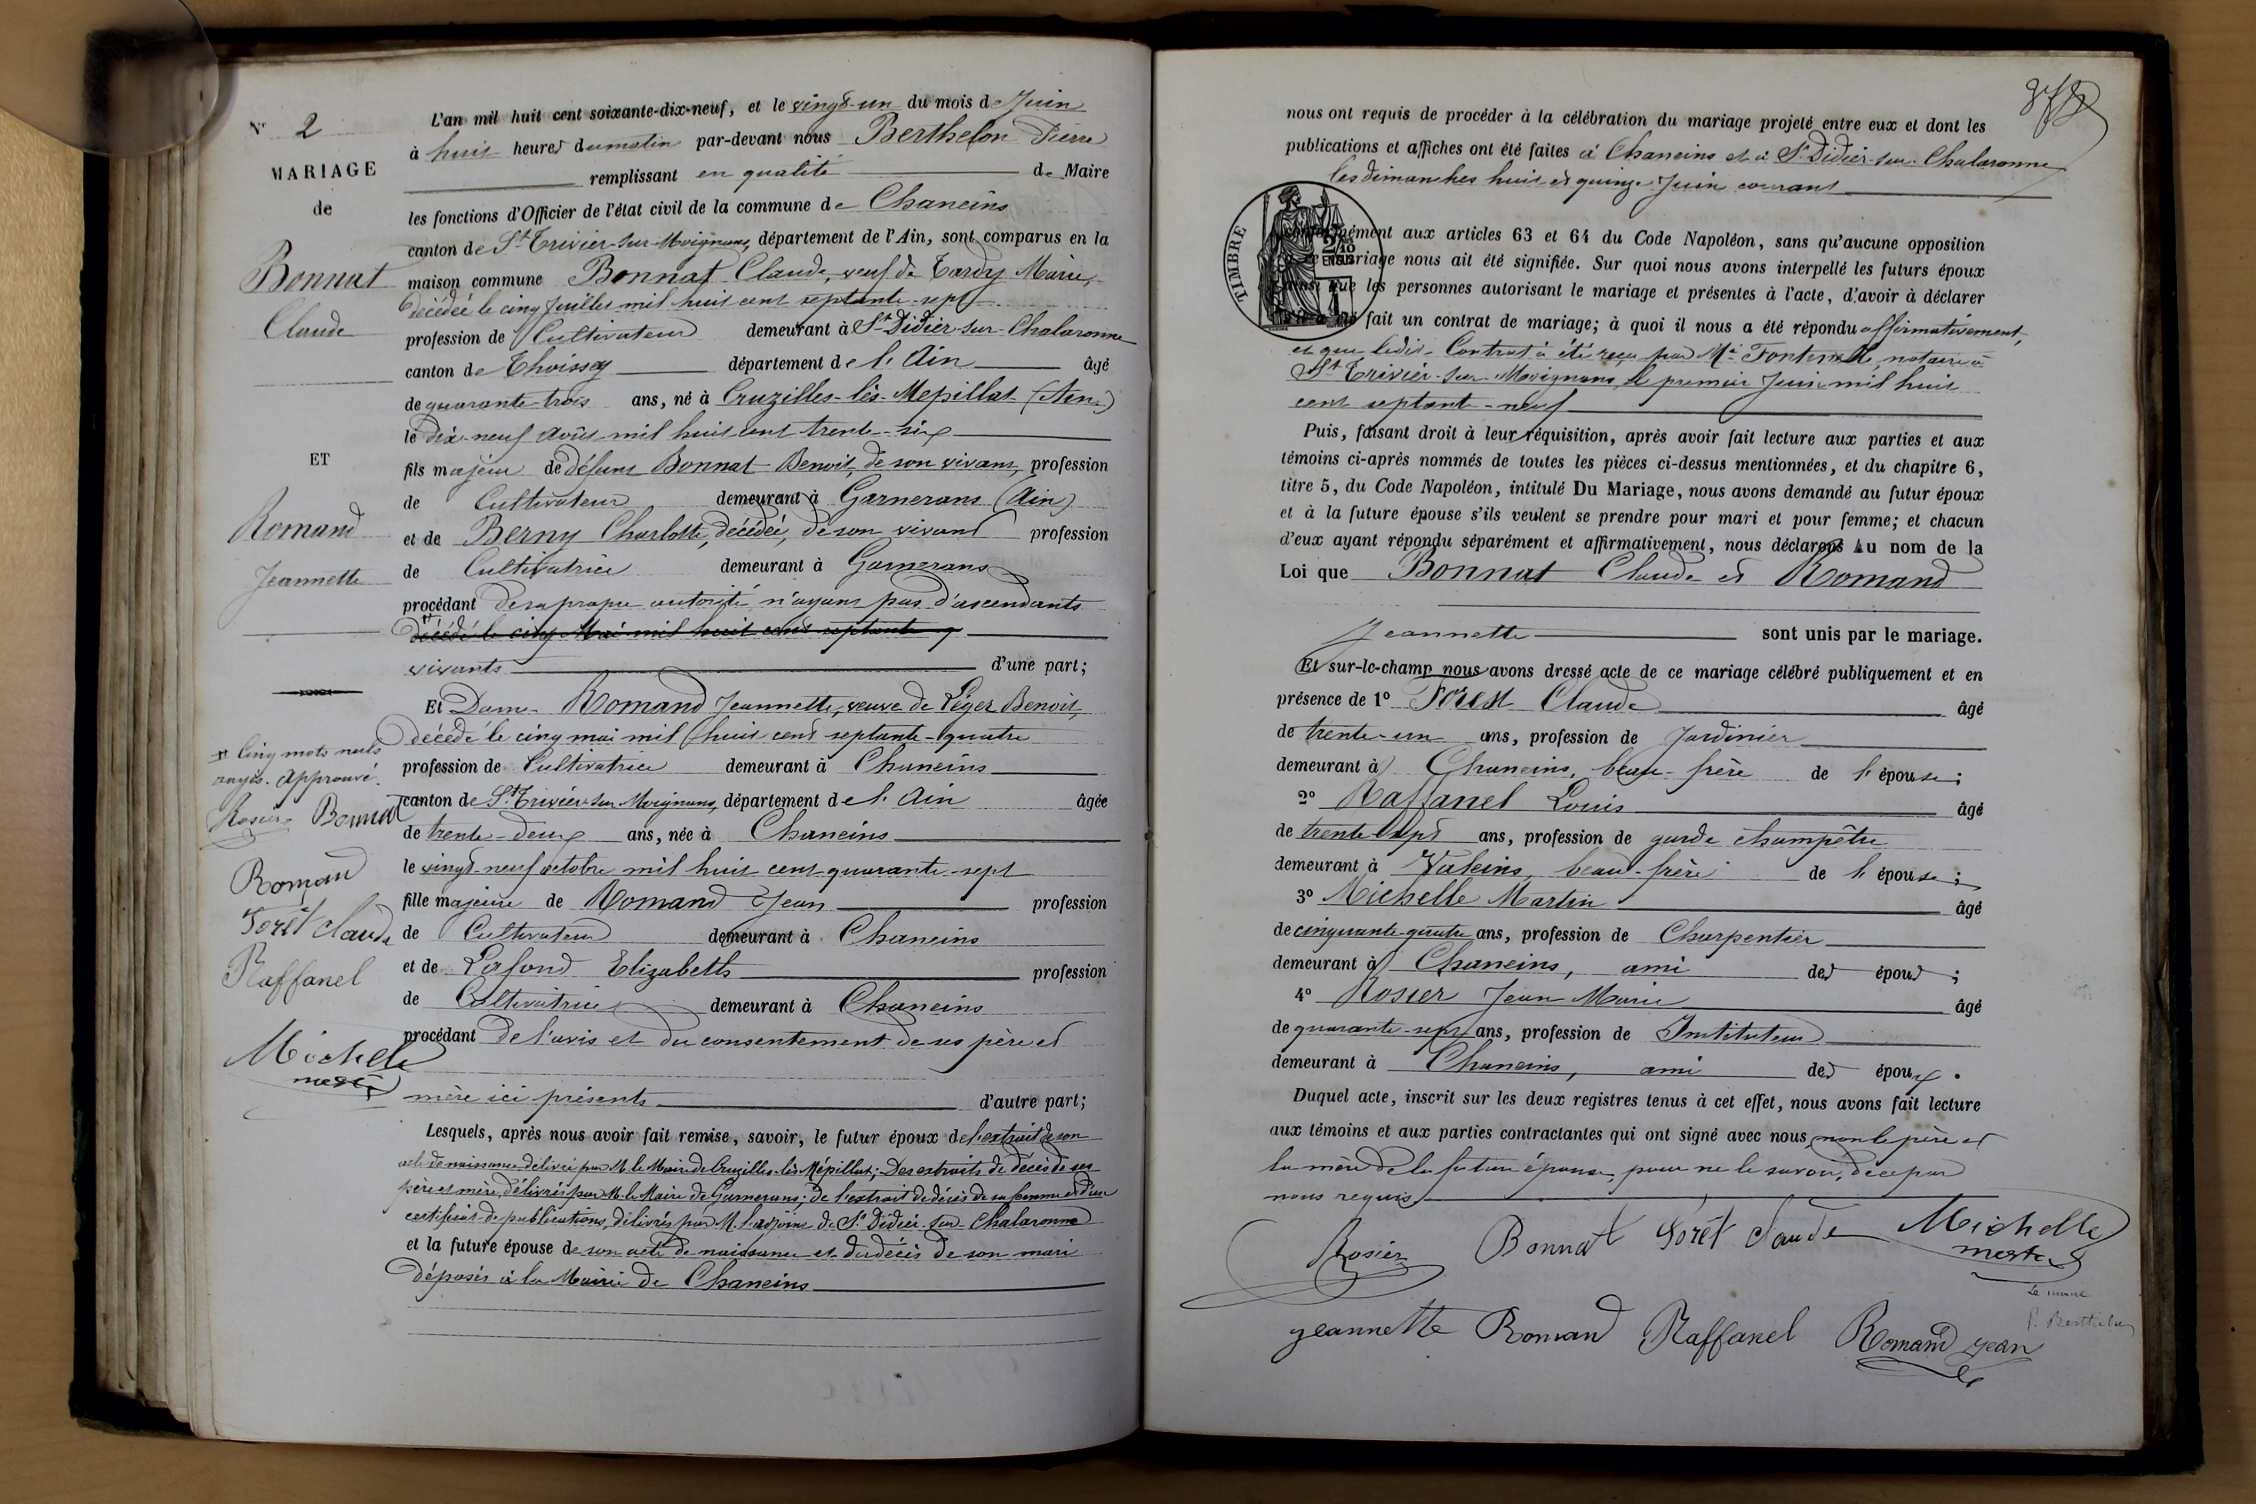 N° 2
MARIAGE
de
Bonnat
Claude
ET
Romand
Jeannette
# Cinq mots nuls
rayés. Approuvé.
Rosier Bonnat
Roman
Forêt Claude
Raffanel
Michelle
L'an mil huit cent soixante-dix-neuf, et le vingt-un du mois de Juin
à huit heures du matin par-devant nous Berthelon Pierre
remplissant en qualité de Maire
les fonctions d'Officier de l'état civil de la commune de Chaneins
canton de St Trivier-sur-Moignans, département de l'Ain, sont comparus en la
maison commune Bonnat Claude, veuf de Tardy Marie,
décédée le cinq Juillet mil huit cent septante-sept
profession de Cultivateur demeurant à St Didier-sur-Chalaronne
canton de Thoissey département de l'Ain âgé
de quarante-trois ans, né à Cruzilles-lès-Mépillat (Ain)
le dix-neuf Août mil huit cent trente-six
fils majeur de défunt Bonnat Benoit, de son vivant, profession
de Cultivateur demeurant à Garnerans (Ain)
et de Berny Charlotte, décédée, de son vivant profession
de Cultivatrice demeurant à Garnerans
procédant de sa propre autorité n'ayant pas d'ascendants
# décédé le cinq Mai mil huit cent septante q
vivants d'une part;
Et Dame Romand Jeannette, veuve de Léger Benoit,
décédé le cinq mai mil huit cent septante-quatre
profession de Cultivatrice demeurant à Chaneins
canton de St Trivier-sur-Moignans, département de l'Ain âgée
de trente-deux ans, née à Chaneins
le vingt-neuf octobre mil huit cent quarante-sept
fille majeure de Romand Jean profession
de Cultivateur demeurant à Chaneins
et de Lafond Elizabeth profession
de Cultivatrice demeurant à Chaneins
procédant de l'avis et du consentement de ses père et
mère ici présents d'autre part;
Lesquels, après nous avoir fait remise, savoir, le futur époux de l'extrait de son
acte de naissance délivré par M. le Maire de Cruzilles-lès-Mépillat; Des extraits de décès de ses
père et mère, délivrés par M. le Maire de Garnerans; de l'extrait de décès de sa femme et d'un
certificat de publications, délivrés par M. l'adjoint de St Didier-sur-Chalaronne
et la future épouse de son acte de naissance et du décès de son mari
déposés à la Mairie de Chaneins
nous ont requis de procéder à la célébration du mariage projeté entre eux et dont les
publications et affiches ont été faites à Chaneins et à St Didier-sur-Chalaronne
les dimanches huit et quinze Juin courant
TIMBRE
2/10
EN SUS
aux articles 63 et 64 du Code Napoléon, sans qu'aucune opposition
mariage nous ait été signifiée. Sur quoi nous avons interpellé les futurs époux
ainsi que les personnes autorisant le mariage et présentes à l'acte, d'avoir à déclarer
fait un contrat de mariage; à quoi il nous a été répondu affirmativement,
et que ledit Contrat a été reçu par Me Fontenelle, notaire à
St Trivier-sur-Moignans, le premier Juin mil huit
cent septante-neuf
Puis, faisant droit à leur réquisition, après avoir fait lecture aux parties et aux
témoins ci-après nommés de toutes les pièces ci-dessus mentionnées, et du chapitre 6,
titre 5, du Code Napoléon, intitulé Du Mariage, nous avons demandé au futur époux
et à la future épouse s'ils veulent se prendre pour mari et pour femme; et chacun
d'eux ayant répondu séparément et affirmativement, nous déclarons Au nom de la
Loi que Bonnat Claude et Romand
Jeannette sont unis par le mariage.
Et sur-le-champ nous avons dressé acte de ce mariage célébré publiquement et en
présence de 1° Forest Claude âgé
de trente-un ans, profession de Jardinier
demeurant à Chaneins, beau-frère de l'épouse;
2° Raffanel Louis âgé
de trente sept ans, profession de garde champêtre
demeurant à Valeins, beau-frère de l'épouse;
3° Michelle Martin âgé
de cinquante-quatre ans, profession de Charpentier
demeurant à Chaneins, ami des époux;
4° Rosier Jean Marie âgé
de quarante-sept ans, profession de Instituteur
demeurant à Chaneins, ami des époux.
Duquel acte, inscrit sur les deux registres tenus à cet effet, nous avons fait lecture
aux témoins et aux parties contractantes qui ont signé avec nous, non le père et
la mère de la future épouse, pour ne le savoir, de ce par
nous requis
Rosier Bonnat Forêt Claude Michelle
Le maire
P. Berthelon
jeannette Romand Raffanel Romand jean